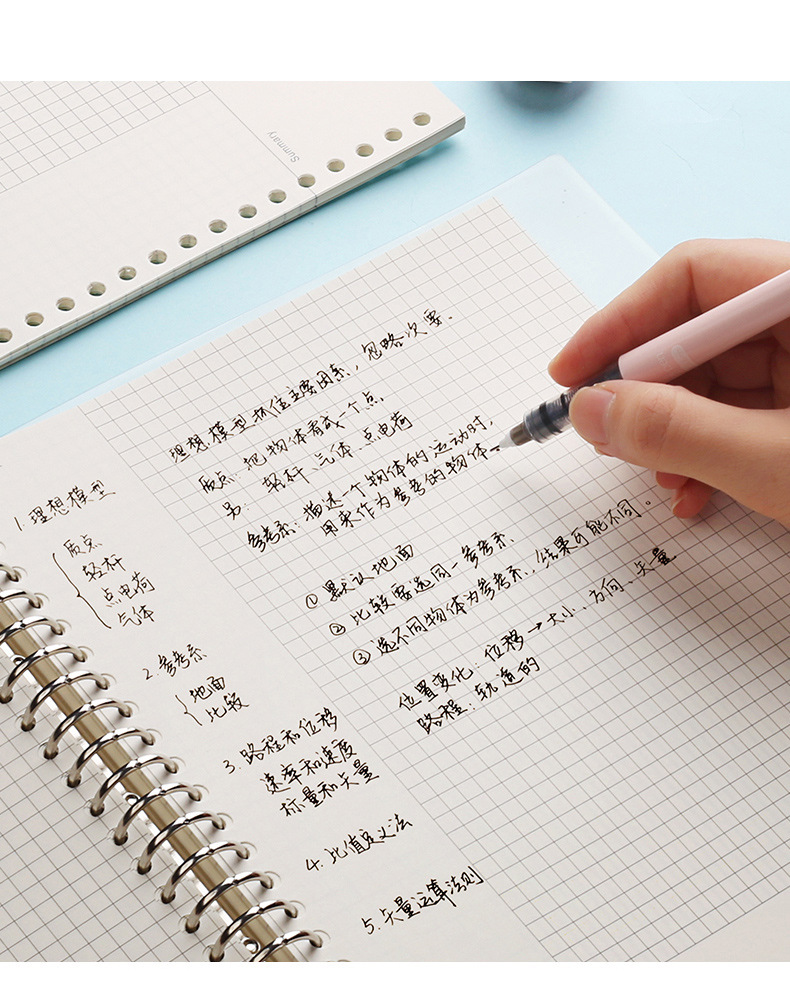 Summary
理想模型抓住主要因素，忽略次要.
质点：把物体看成一个点.
另：轻杆、气体、点电荷
参考系：描述一个物体的运动时，
用来作为参考的物体
① 默认地面
② 比较要选同一参考系.
③ 选不同物体为参考系，结果可能不同。
位置变化：位移→大小、方向、矢量
路程：轨道的
1. 理想模型
质点
轻杆
点电荷
气体
2. 参考系
地面
比较
3. 路程和位移
速率和速度
标量和矢量
4. 比值定义法
5. 矢量运算法则